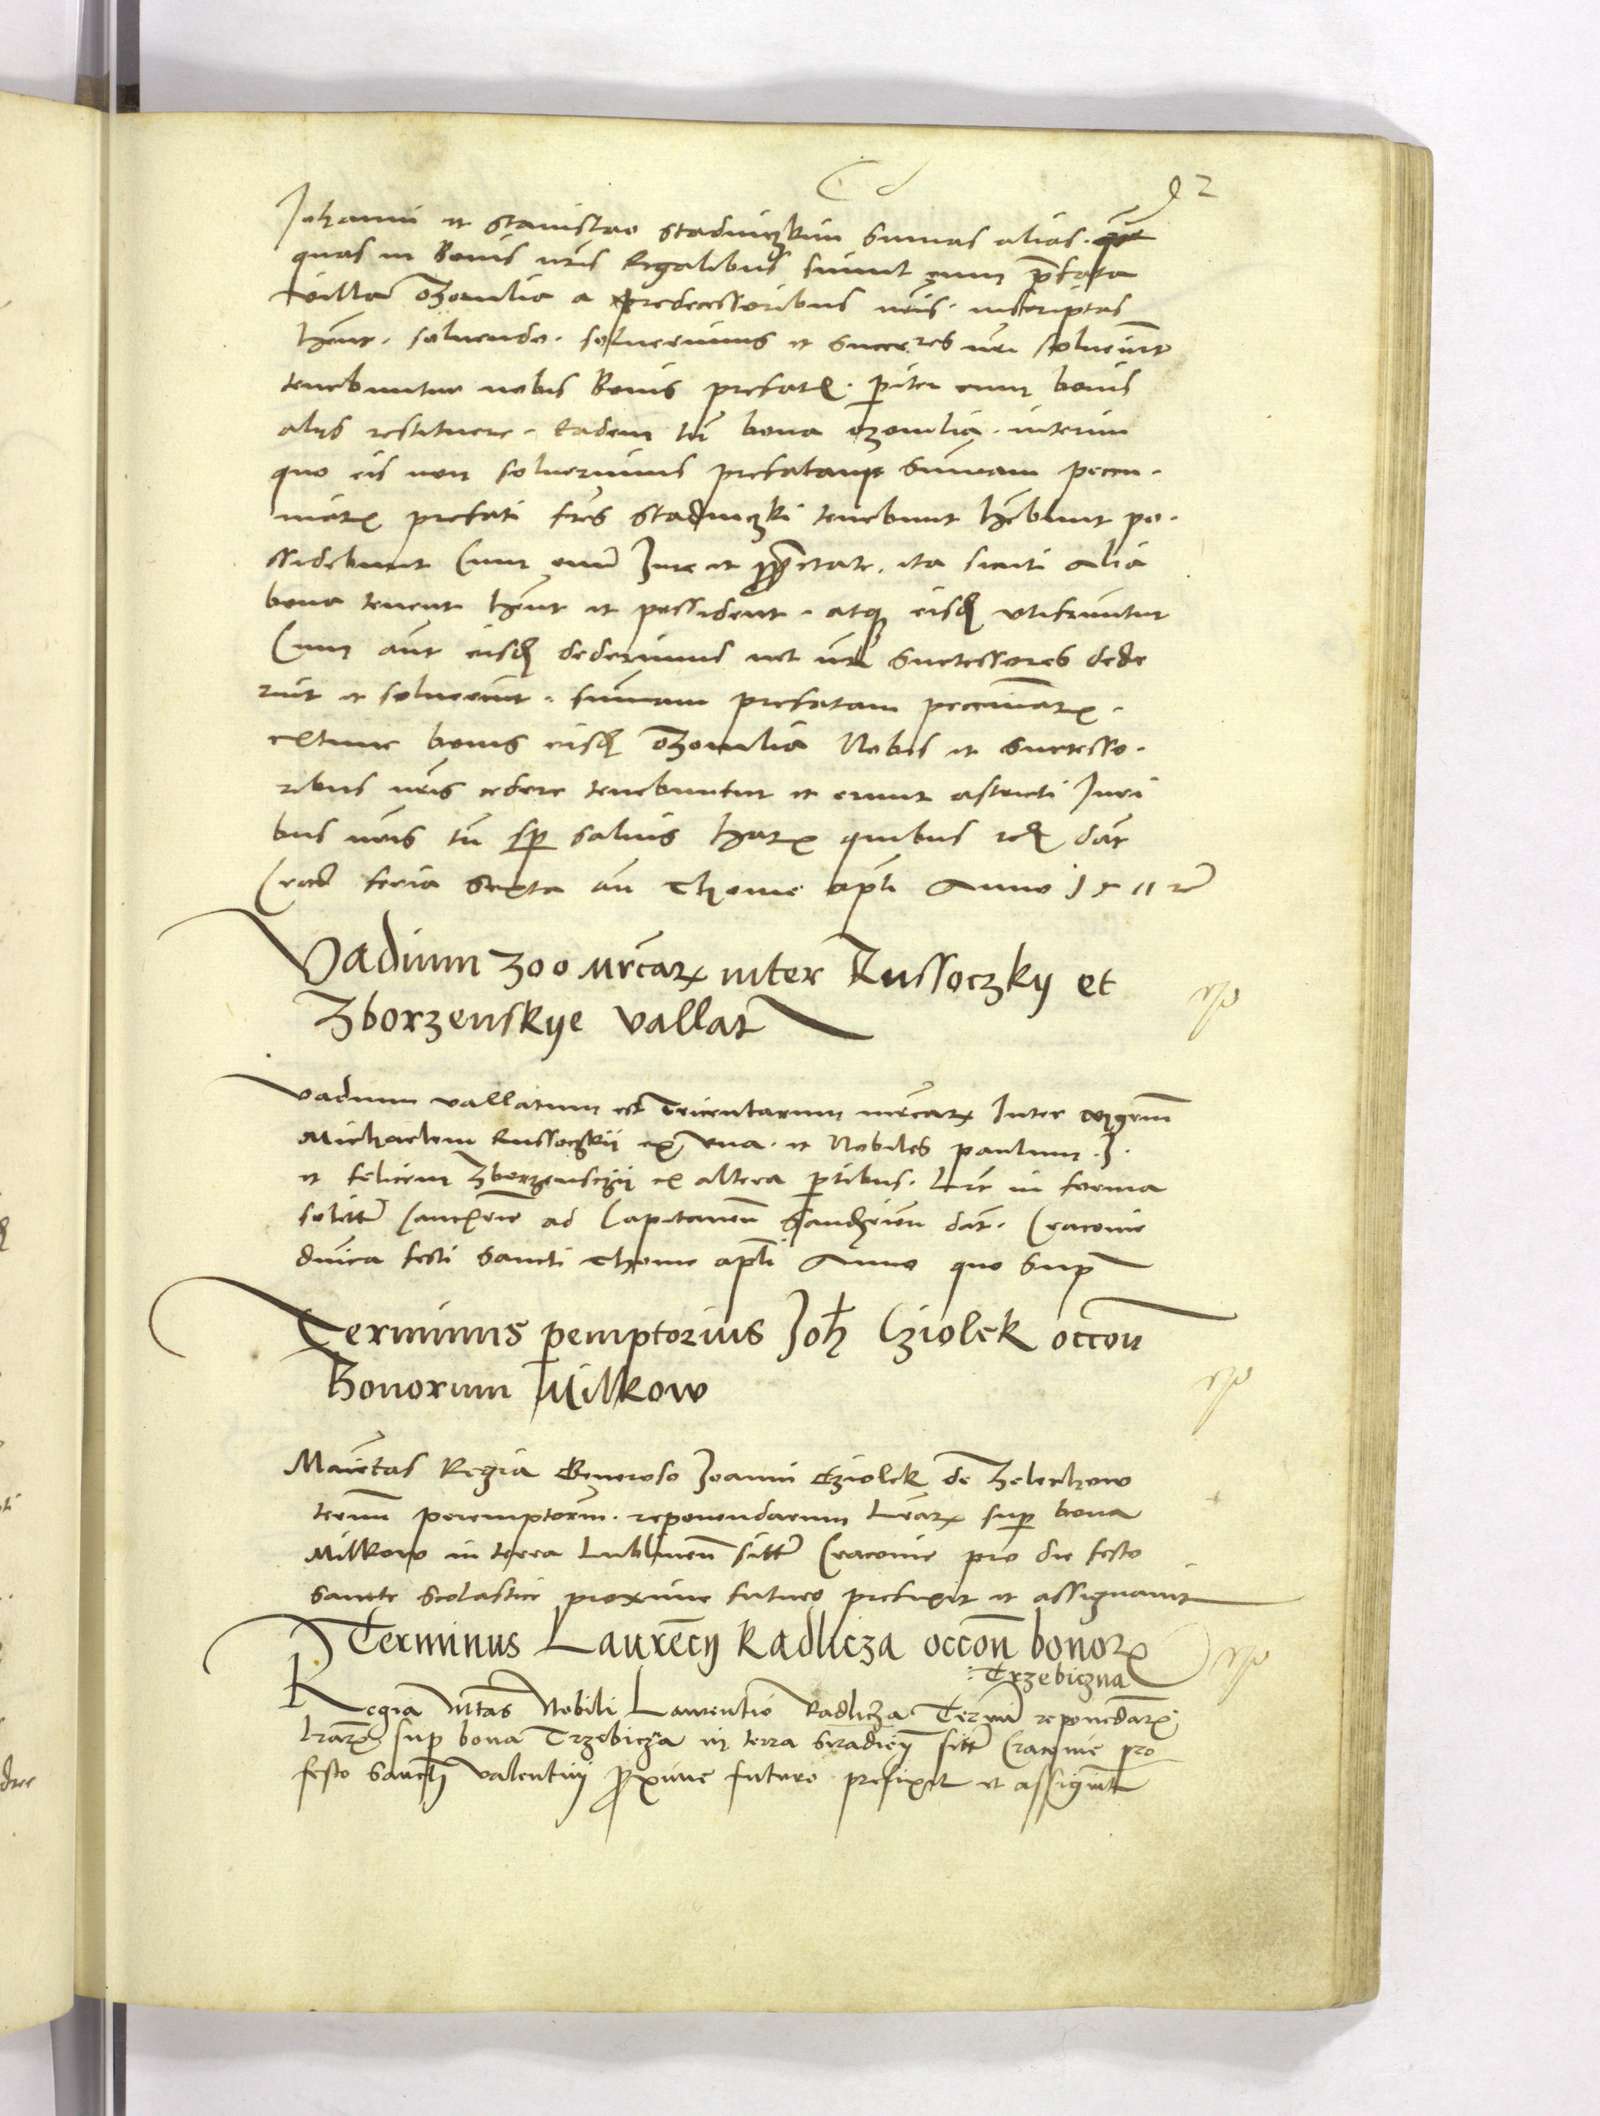 92
Johanni et Stanislao Stadniczkim summas alias
quas in Bonis nris Regalibus simul cum prefata
villa Ozomlia a predecessoribus nris inscriptas
hent. soluendo. soluerimus et succes.res nri soluerint
tenebuntur nobis Bonis prefatis. pariter cum bonis
alys restituere. Eadem tn bona ozomlia. interim
quo eis non soluerimus prefatam summam pecu.
niarx prefati fres Stadniczki tenebunt hebunt po.
ssidebunt Cum omni Jure et proprietate. ita sicuti alia
bona tenent hent et possident. atq eisd utifruuntur
Cum aut eisd dederimus uel nri successores dede
rint et soluerint. summam prefatam pecuniarx.
extunc bonis eisd Ozomlia Nobis et successo.
ribus nris cedere tenebuntur et erunt astricti Juri
bus nris tn sp saluis harx quibus rc dat
Crac feria Sexta an Thome apli Anno 1511 rc
Vadium 300 mrcarx inter Russoczky et
Zborzenskye vallat
Vadium vallatum est Tricentarum mrcarx Inter
Michaelem Russoczkij ex vna. et Nobiles paulum. J.
et felicem Zborzensczij ex altera ptibus. Lre in forma
solita Cancrie ad Capitaneum Sandzien dat. Cracouie
dnica festi Sancti Thome apli Anno quo sup
Terminus pemptorius Joh Cziolek occon
Bonorum Milkow
Maiestas Regia Generoso Joanni Cziolek de Zelechow
termn peremptorm. reponendarum lrarx sup bona
Milkow in terra Lublinen sitt Cracouie pro die festo
Sancte Scolastice proxime futuro prefixit et assignauit
Terminus Laurecy Radlicza occon bonorx
Trzebiczna
Regia Mtas Nobili Laurentio Radlicza Termin reponedarx
lrarx sup bona Trzebicza in terra Siradien sitt Cracouie pro
festo Sancti Valentini proxime futuro prefixit et assignauit